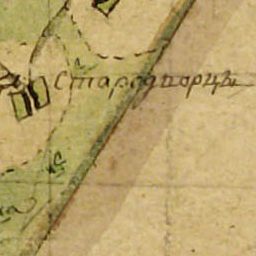 Стародворцы